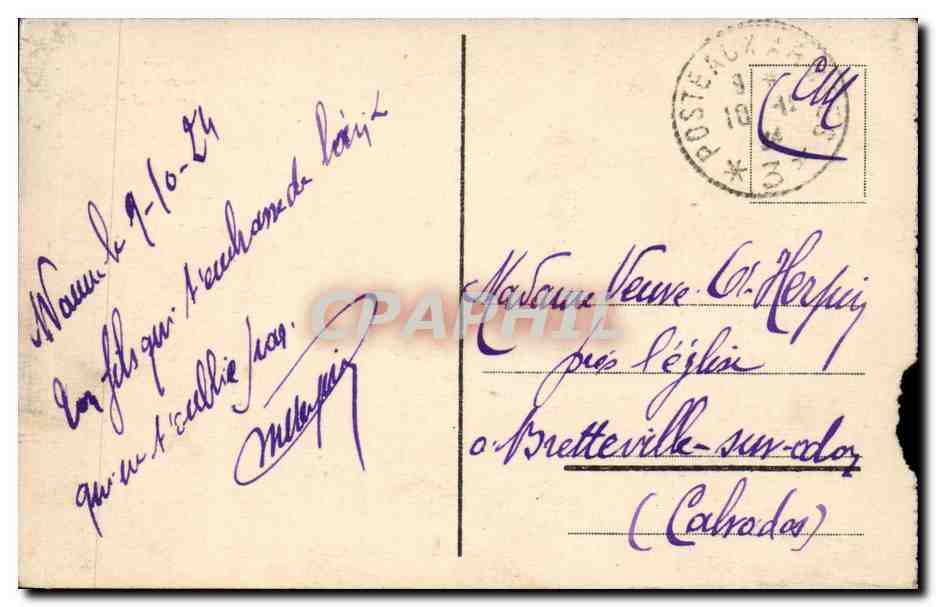 le 9-10-24
Ton fils qui t'embrasse de loin et
qui ne t'oublie pas.
MHerpin
POSTE AUX ARMEES
10
* 3 *
CM
Madame Veuve Ct. Herpin
près l'église
à Bretteville-sur-odon
(Calvados)
CPAPHIL